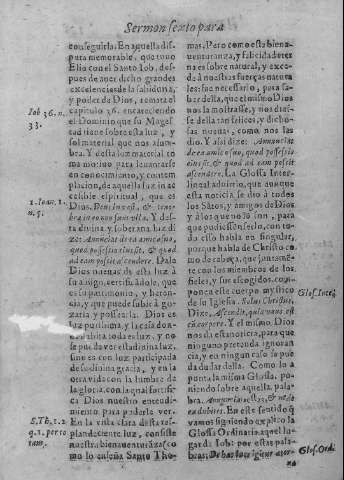 Sermon sexto para
conseguirla. En aquella dis-
puta memorable, que tuuo
Elio con el Santo Iob, des-
pues de auer dicho grandes
excelencias de la sabiduria,
y poder de Dios, remata el
capitulo 36. encareciendo
el Dominio que su Mages-
tad tiene sobre esta luz, y
sol material que nos alum-
bra. Y desta luz material to
ma motiuo para leuantarse
en conocimiento, y contem
placion, de aquella luz inac
cesible espiritual, que es
Dios. Deus lux est, & tene-
bræ in eo non sunt vlla. Y des-
ta diuina, y soberana luz di
ze: Annuntiat de ea amico suo,
quod possessio eius sit, & quod
ad eam possit ascendere. Dale
Dios nueuas de esta luz à
su amigo, certificandole, que
es su patrimonio, y heren-
cia, y que puede subir à go-
zarla, y posseerla. Dios es
luz purissima, y la casa don-
de habita toda es luz, y no
se puede ver esta diuina luz,
sino es con luz participada
de su diuina gracia, y en la
otra vida con la lumbre de
la gloria, con la qual fortifi
ca Dios nuestro entendi-
miento para poderle ver.
En la vista clara desta res-
plandeciente luz, consiste
nuestra bienauenturança, co
mo lo enseña Santo Tho-
Iob 36. n.
33.
1. Ioan. 1.
n. 5.
S. Th. 1. 2
q. 3. per to
tam.
mas. Pero como esta bien a-
uenturança, y felicidad eter
na es sobre natural, y exce-
de à nuestras fuerças natura
les: fue necessario, para sa-
ber della, que el mismo Dios
nos la mostrasse, y nos dies-
se della tan felices, y dicho-
sas nueuas, como nos las
dio. Y assi dize: Annuntiat
de ea amico suo, quod possessio
eius sit, & quod ad eam possit
ascendere. La Glossa Inter-
lineal aduirtio, que aunque
esta noticia se dio à todos
los Sãtos, y amigos de Dios
y à los que no lo son, para
que pudiessen serlo, con to-
do esto habla en singular,
porque habla de Christo co
mo de cabeça, que juntamẽ-
te con los miembros de los
fieles, y sus escogidos, com-
ponen este cuerpo mystico
de su Iglesia. Solus Christus,
Dize, Ascendit, quia vnus est
cũ corpore. Y el mismo Dios
nos la anuncia, para que
ninguno pretenda ignoran-
cia, y en ningun caso se pue
da dudar della. Como lo a
punta la misma Glossa, po-
niendo sobre aquella, pala-
bra. Annuntiat
En este sentido q̃
vamos siguiendo explicò la
Glossa Ordinaria aquel lu-
gar de Iob: por estas pala-
bras: De hac luce igitur æter-
na
Glos. Inter.
Glos. Ordi.